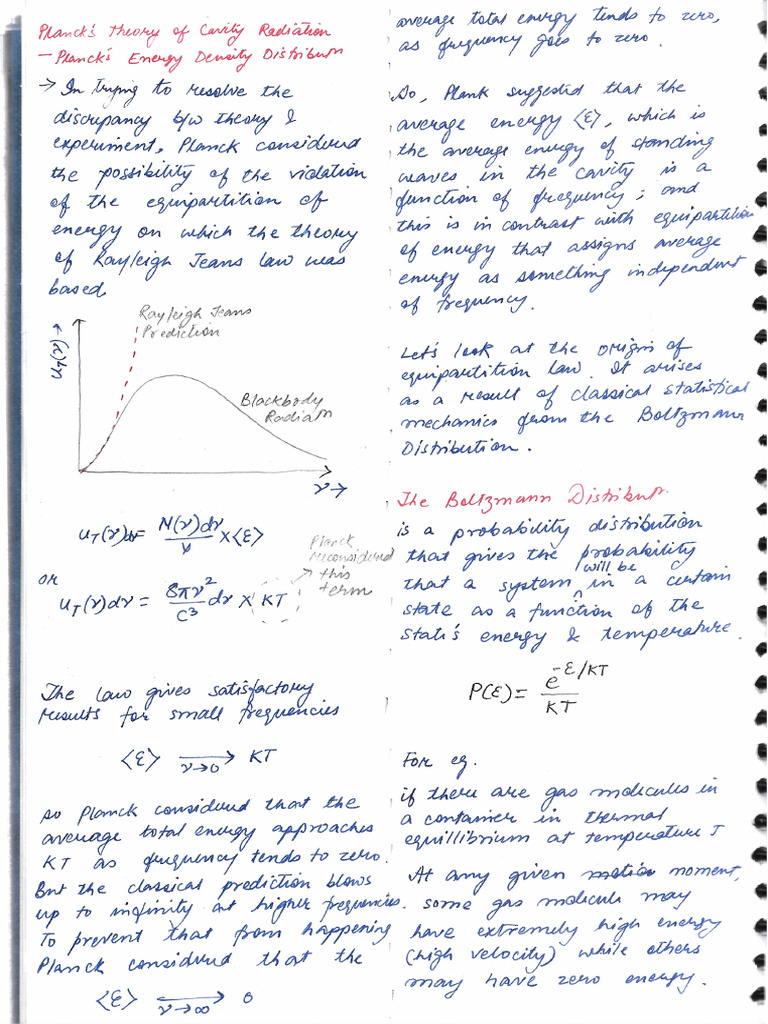 Planck's Theory of Cavity Radiation
— Planck's Energy Density Distributn
→ In trying to resolve the
discrepancy b/w theory &
experiment, Planck considered
the possibility of the violation
of the equipartition of
energy on which the theory
of Rayleigh Jeans law was
based
Rayleigh Jeans
Prediction
u_T(ν) →
Blackbody
Radiatn
ν →
u_T(ν)dν = N(ν)dν/V × ⟨ε⟩
or
u_T(ν)dν = 8πν²/c³ dν × KT
Planck
reconsidered
this
term
The law gives satisfactory
results for small frequencies
⟨ε⟩ ⟶ KT
ν→0
so Planck considered that the
average total energy approaches
KT as frequency tends to zero.
But the classical prediction blows
up to infinity at higher frequencies.
To prevent that from happening
Planck considered that the
⟨ε⟩ ⟶ 0
ν→∞
average total energy tends to zero,
as frequency goes to zero.
So, Plank suggested that the
average energy ⟨ε⟩, which is
the average energy of standing
waves in the cavity is a
function of frequency; and
this is in contrast with equipartition
of energy that assigns average
energy as something independent
of frequency.
Let's look at the origin of
equipartition law. It arises
as a result of classical statistical
mechanics from the Boltzmann
Distribution.
The Boltzmann Distributn.
is a probability distribution
that gives the probability
that a system will be in a certain
state as a function of the
state's energy & temperature.
P(ε) = e^(-ε/KT)/KT
For eg.
if there are gas molecules in
a container in thermal
equillibrium at temperature T
At any given motion moment,
some gas molecule may
have extremely high energy
(high velocity) while others
may have zero energy.